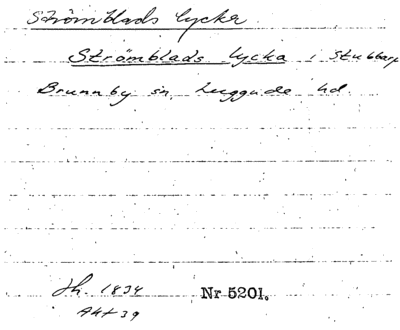 Strömblads lycka
Strömblads lycka i Stubbarp
Brunnby sn. Luggude hd.
Jh. 1834 Nr 5201.
Akt 39